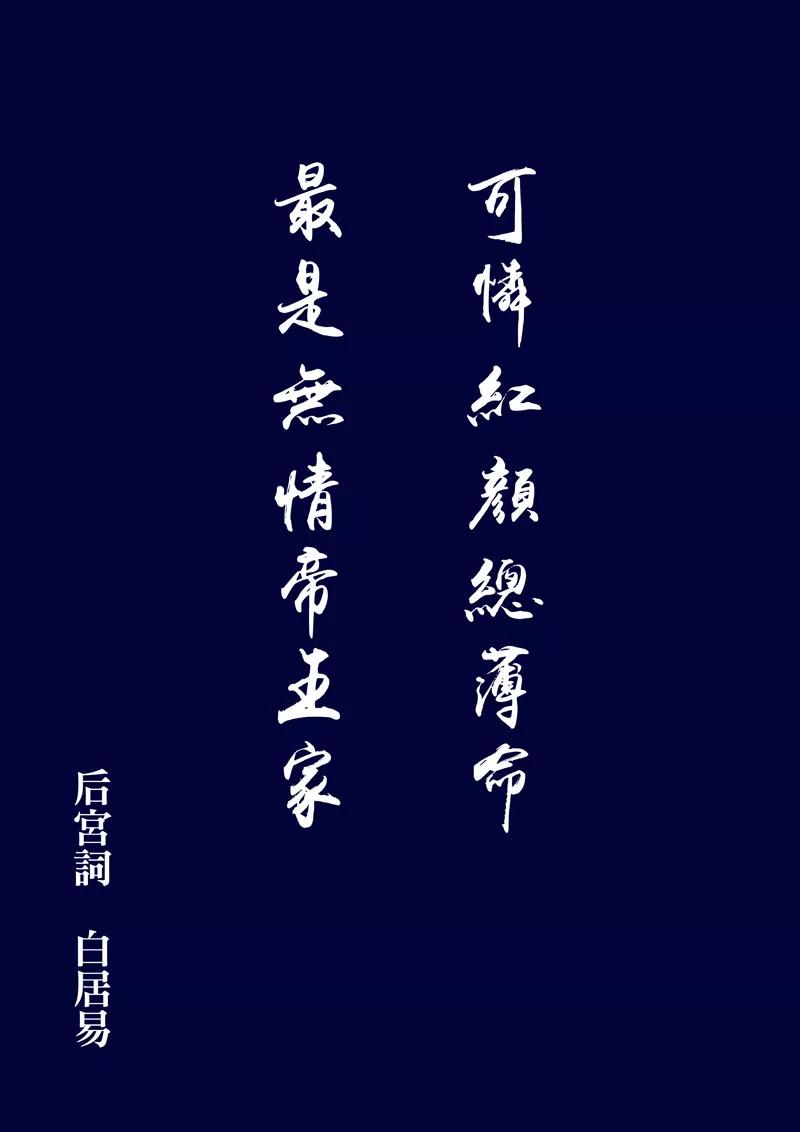 可憐紅顏總薄命
最是無情帝王家
后宮詞 白居易